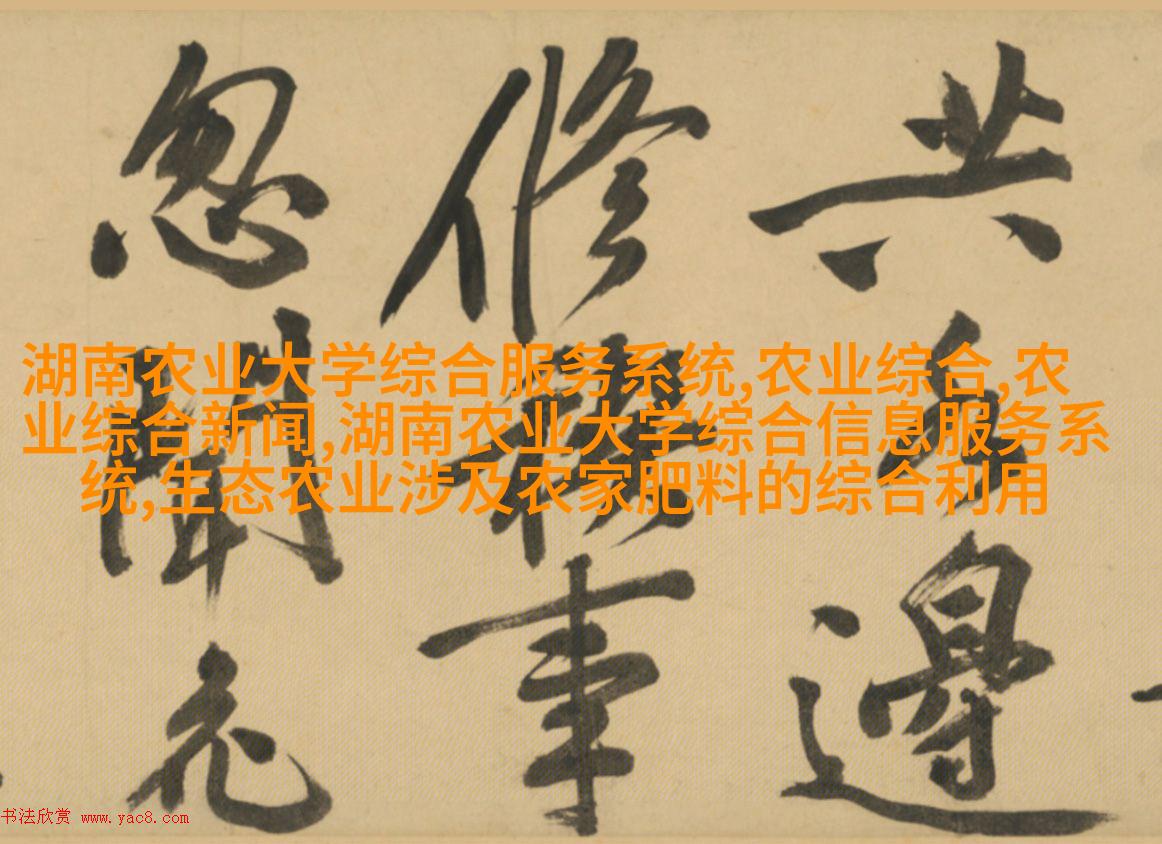 共
邊
修禊事
忽聞
湖南农业大学综合服务系统,农业综合,农
业综合新闻,湖南农业大学综合信息服务系
统,生态农业涉及农家肥料的综合利用
书法欣赏 www.yac8.com